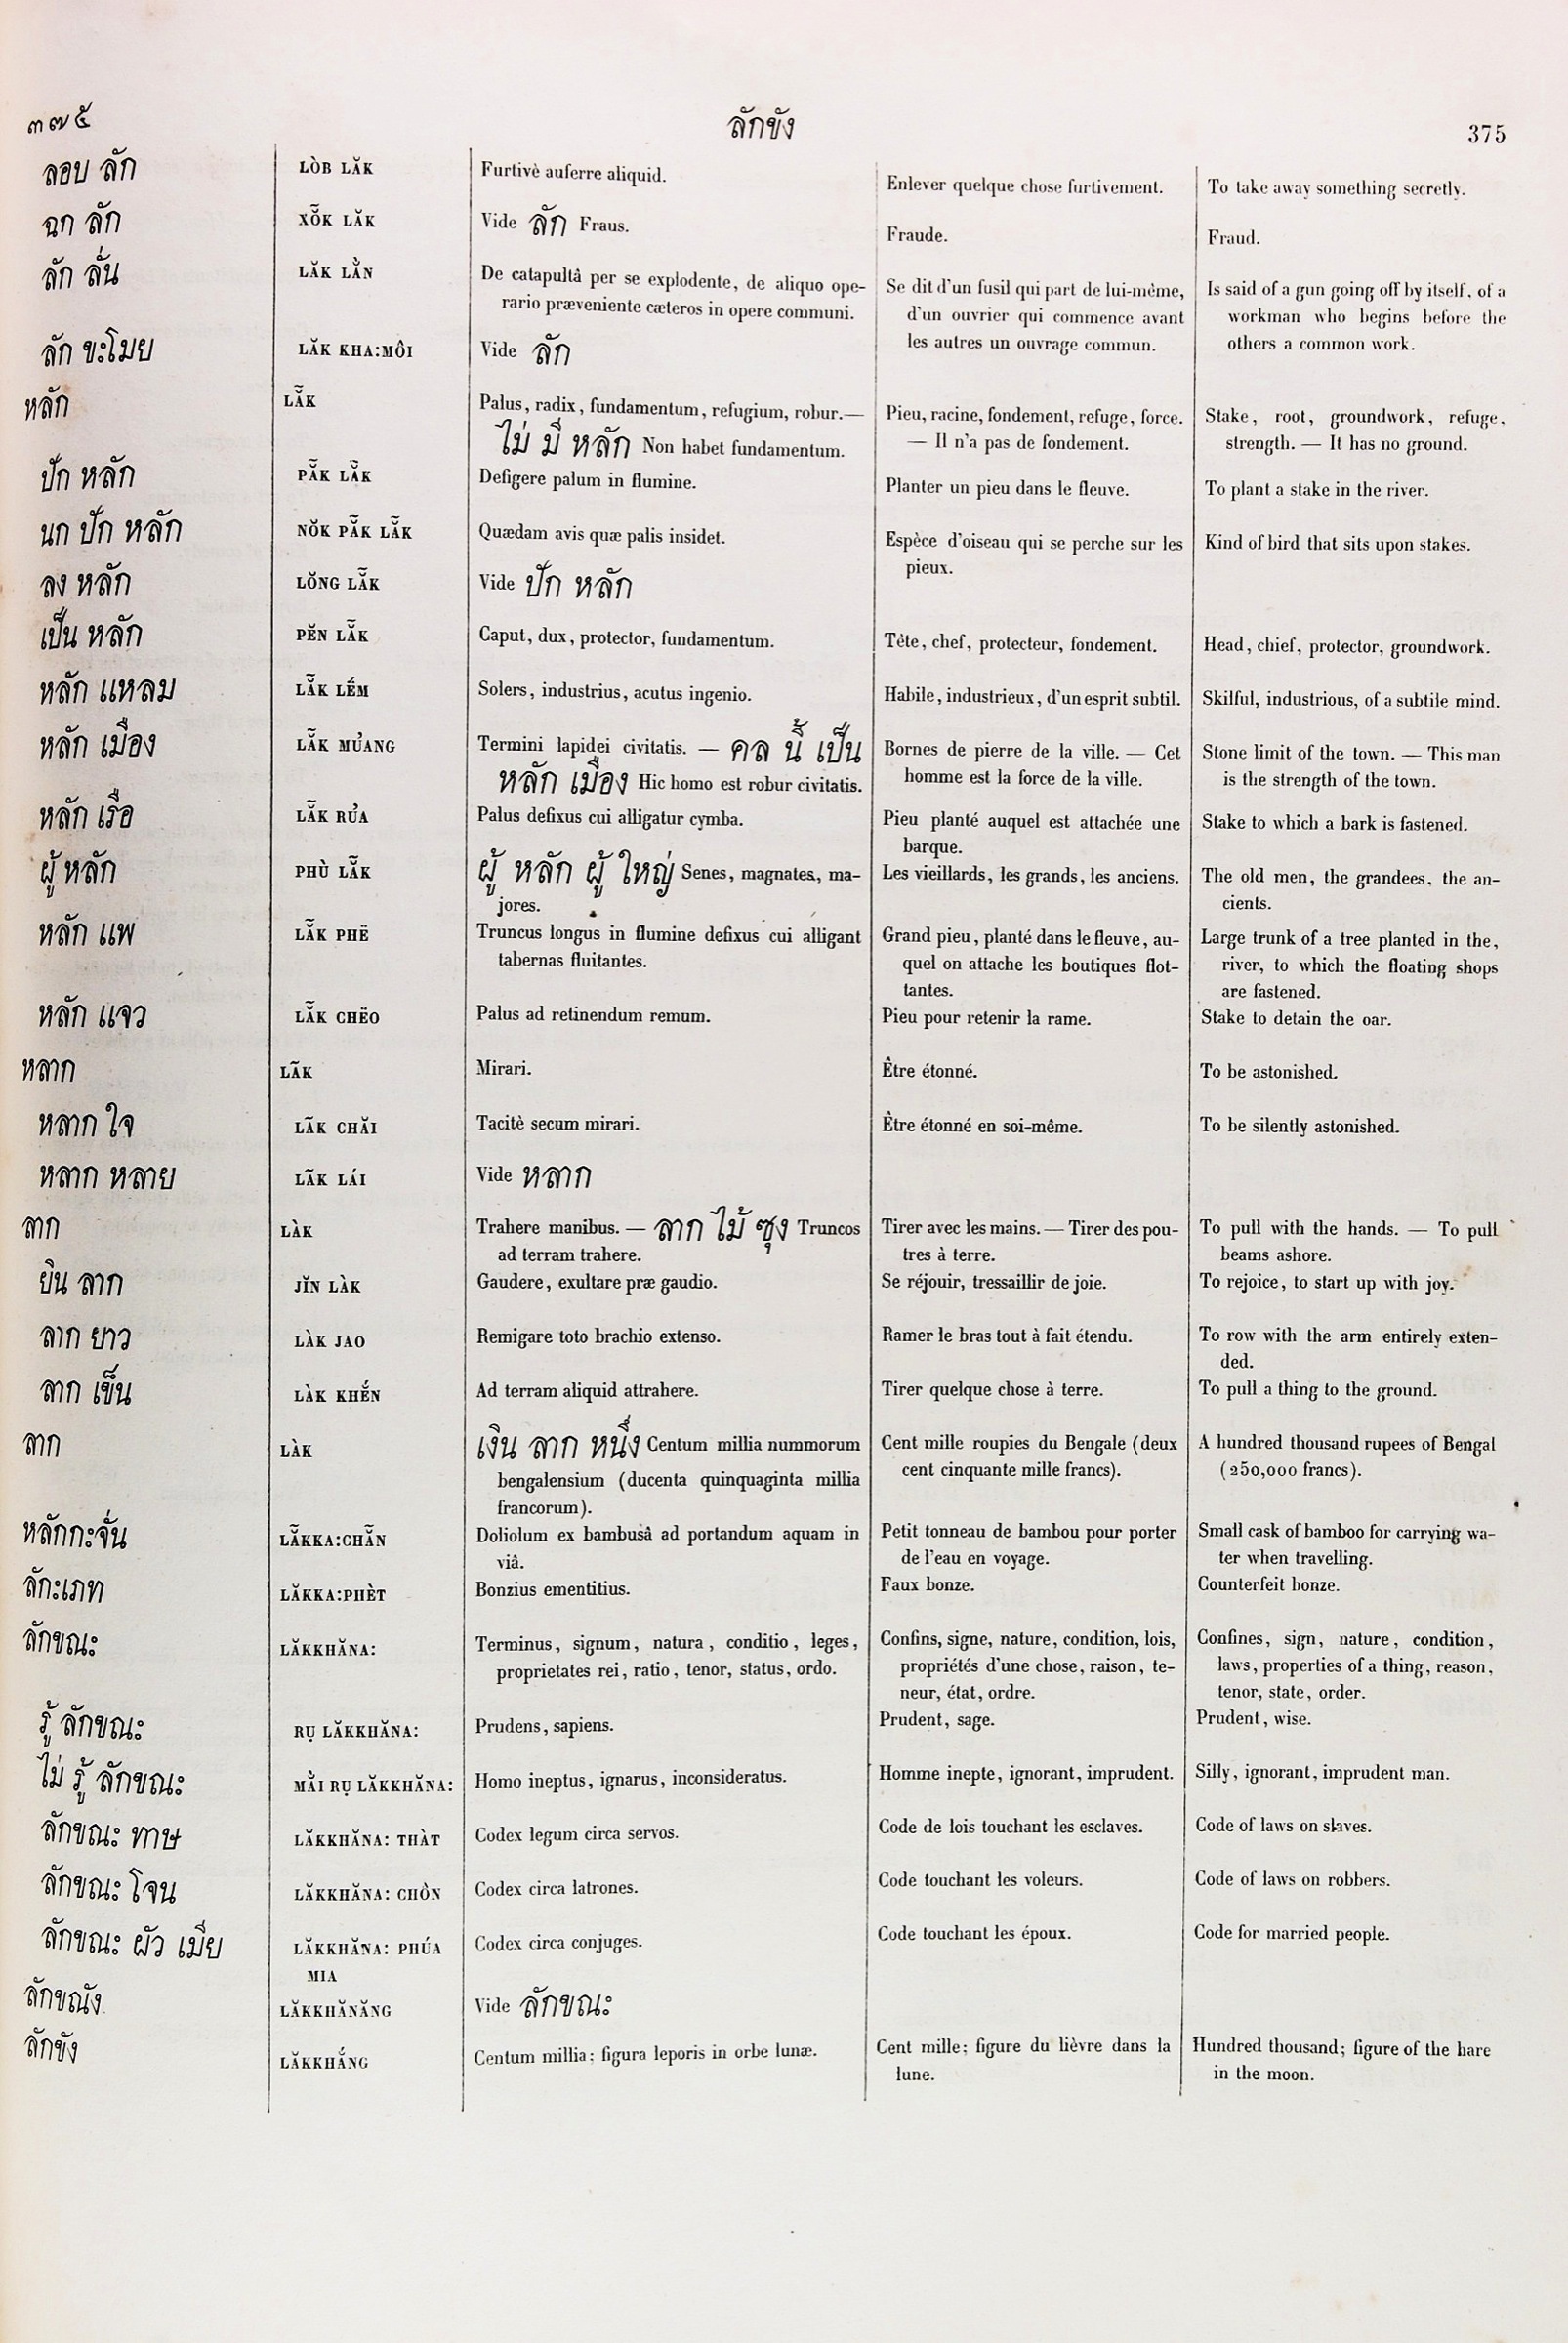 ๓๗๕
ลักขัง
375
ลอบ ลัก
LÒB LĂK
Furtivè auferre aliquid.
Enlever quelque chose furtivement.
To take away something secretly.
ฉก ลัก
XŎ̃K LĂK
Vide ลัก Fraus.
Fraude.
Fraud.
ลัก ลั่น
LĂK LẰN
De catapultâ per se explodente, de aliquo ope-
rario præveniente cæteros in opere communi.
Se dit d'un fusil qui part de lui-même,
d'un ouvrier qui commence avant
les autres un ouvrage commun.
Is said of a gun going off by itself, of a
workman who begins before the
others a common work.
ลัก ขะโมย
LĂK KHA:MÔI
Vide ลัก
หลัก
LẴK
Palus, radix, fundamentum, refugium, robur.—
ไม่ มี หลัก Non habet fundamentum.
Pieu, racine, fondement, refuge, force.
— Il n'a pas de fondement.
Stake, root, groundwork, refuge,
strength. — It has no ground.
ปัก หลัก
PẴK LẴK
Defigere palum in flumine.
Planter un pieu dans le fleuve.
To plant a stake in the river.
นก ปัก หลัก
NŎK PẴK LẴK
Quædam avis quæ palis insidet.
Espèce d'oiseau qui se perche sur les
pieux.
Kind of bird that sits upon stakes.
ลง หลัก
LŎNG LẴK
Vide ปัก หลัก
เป็น หลัก
PĔN LẴK
Caput, dux, protector, fundamentum.
Tête, chef, protecteur, fondement.
Head, chief, protector, groundwork.
หลัก แหลม
LẴK LẾM
Solers, industrius, acutus ingenio.
Habile, industrieux, d'un esprit subtil.
Skilful, industrious, of a subtile mind.
หลัก เมือง
LẴK MỦANG
Termini lapidei civitatis. — คล นี้ เป็น
หลัก เมือง Hic homo est robur civitatis.
Bornes de pierre de la ville. — Cet
homme est la force de la ville.
Stone limit of the town. — This man
is the strength of the town.
หลัก เรือ
LẴK RỦA
Palus defixus cui alligatur cymba.
Pieu planté auquel est attachée une
barque.
Stake to which a bark is fastened.
ผู้ หลัก
PHÙ LẴK
ผู้ หลัก ผู้ ใหญ่ Senes, magnates, ma-
jores.
Les vieillards, les grands, les anciens.
The old men, the grandees, the an-
cients.
หลัก แพ
LẴK PHË
Truncus longus in flumine defixus cui alligant
tabernas fluitantes.
Grand pieu, planté dans le fleuve, au-
quel on attache les boutiques flot-
tantes.
Large trunk of a tree planted in the,
river, to which the floating shops
are fastened.
หลัก แจว
LẴK CHËO
Palus ad retinendum remum.
Pieu pour retenir la rame.
Stake to detain the oar.
หลาก
LÃK
Mirari.
Être étonné.
To be astonished.
หลาก ใจ
LÃK CHĂI
Tacitè secum mirari.
Être étonné en soi-même.
To be silently astonished.
หลาก หลาย
LÃK LÁI
Vide หลาก
ลาก
LÀK
Trahere manibus. — ลาก ไม้ ซุง Truncos
ad terram trahere.
Tirer avec les mains. — Tirer des pou-
tres à terre.
To pull with the hands. — To pull
beams ashore.
ยิน ลาก
JĬN LÀK
Gaudere, exultare præ gaudio.
Se réjouir, tressaillir de joie.
To rejoice, to start up with joy.
ลาก ยาว
LÀK JAO
Remigare toto brachio extenso.
Ramer le bras tout à fait étendu.
To row with the arm entirely exten-
ded.
ลาก เข็น
LÀK KHẾN
Ad terram aliquid attrahere.
Tirer quelque chose à terre.
To pull a thing to the ground.
ลาก
LÀK
เงิน ลาก หนึ่ง Centum millia nummorum
bengalensium (ducenta quinquaginta millia
francorum).
Cent mille roupies du Bengale (deux
cent cinquante mille francs).
A hundred thousand rupees of Bengal
(250,000 francs).
หลักกะจั่น
LẴKKA:CHẴN
Doliolum ex bambusâ ad portandum aquam in
viâ.
Petit tonneau de bambou pour porter
de l'eau en voyage.
Small cask of bamboo for carrying wa-
ter when travelling.
ลักะเภท
LĂKKA:PHÈT
Bonzius ementitius.
Faux bonze.
Counterfeit bonze.
ลักขณะ
LĂKKHĂNA:
Terminus, signum, natura, conditio, leges,
proprietates rei, ratio, tenor, status, ordo.
Confins, signe, nature, condition, lois,
propriétés d'une chose, raison, te-
neur, état, ordre.
Confines, sign, nature, condition,
laws, properties of a thing, reason,
tenor, state, order.
รู้ ลักขณะ
RỤ LĂKKHĂNA:
Prudens, sapiens.
Prudent, sage.
Prudent, wise.
ไม่ รู้ ลักขณะ
MẰI RỤ LĂKKHĂNA:
Homo ineptus, ignarus, inconsideratus.
Homme inepte, ignorant, imprudent.
Silly, ignorant, imprudent man.
ลักขณะ ทาษ
LĂKKHĂNA: THÀT
Codex legum circa servos.
Code de lois touchant les esclaves.
Code of laws on slaves.
ลักขณะ โจน
LĂKKHĂNA: CHÔN
Codex circa latrones.
Code touchant les voleurs.
Code of laws on robbers.
ลักขณะ ผัว เมีย
LĂKKHĂNA: PHÚA
MIA
Codex circa conjuges.
Code touchant les époux.
Code for married people.
ลักขณัง
LĂKKHĂNĂNG
Vide ลักขณะ
ลักขัง
LĂKKHẮNG
Centum millia; figura leporis in orbe lunæ.
Cent mille; figure du lièvre dans la
lune.
Hundred thousand; figure of the hare
in the moon.